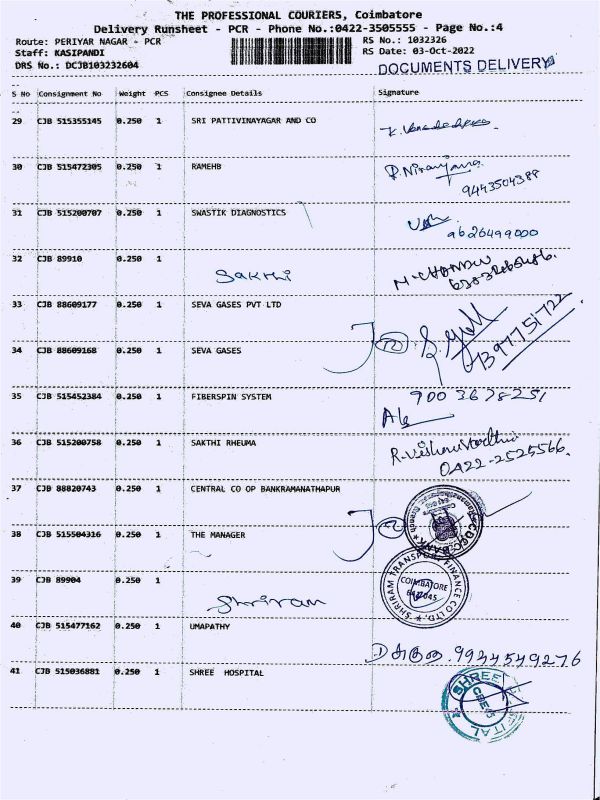 THE PROFESSIONAL COURIERS, Coimbatore
Delivery Runsheet - PCR - Phone No.:0422-3505555 - Page No.:4
Route: PERIYAR NAGAR - PCR
RS No.: 1032326
Staff: KASIPANDI
RS Date: 03-Oct-2022
DRS No.: DCJB103232604
DOCUMENTS DELIVERY
S No Consignment No Weight PCS Consignee Details Signature
29 CJB 515355145 0.250 1 SRI PATTIVINAYAGAR AND CO
30 CJB 515472305 0.250 1 RAMEHB
9443504388
31 CJB 515200707 0.250 1 SWASTIK DIAGNOSTICS
9626499000
32 CJB 89910 0.250 1 Sakthi
33 CJB 88609177 0.250 1 SEVA GASES PVT LTD
34 CJB 88609168 0.250 1 SEVA GASES
35 CJB 515452384 0.250 1 FIBERSPIN SYSTEM 9003678251
36 CJB 515200758 0.250 1 SAKTHI RHEUMA
0422-2525566.
37 CJB 88820743 0.250 1 CENTRAL CO OP BANKRAMANATHAPUR
38 CJB 515504316 0.250 1 THE MANAGER
SHRIRAM TRANSPORT FINANCE CO LTD.
COIMBATORE
641 045
39 CJB 89904 0.250 1 Shriram
40 CJB 515477162 0.250 1 UMAPATHY
9944549276
41 CJB 515036881 0.250 1 SHREE HOSPITAL
SHREE HOSPITAL